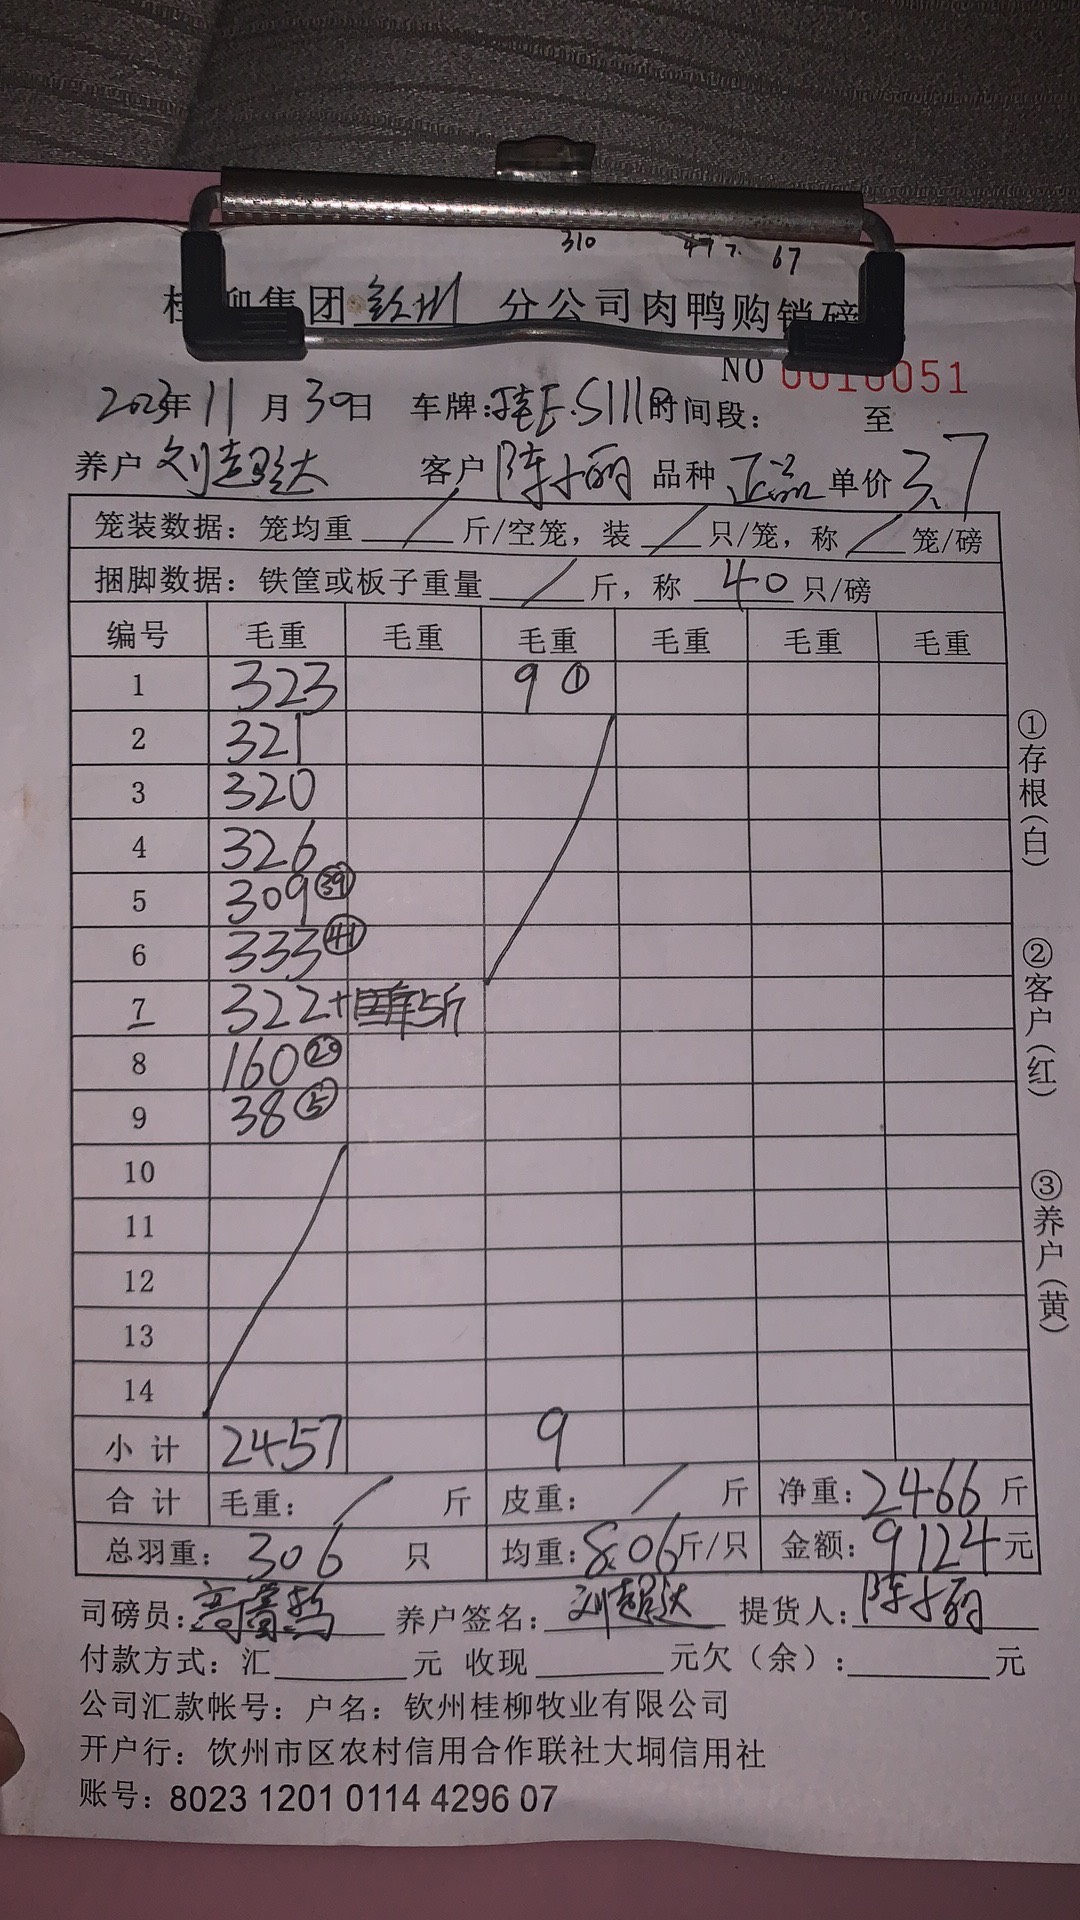 310 477. 67
桂柳集团 钦州 分公司肉鸭购销磅
NO 0010051
2023年 11 月 30日 车牌:桂E.S111 时间段: 至
养户 刘超达 客户 陈小丽 品种 正品 单价 3.7
笼装数据: 笼均重 / 斤/空笼, 装 / 只/笼, 称 / 笼/磅
捆脚数据: 铁筐或板子重量 / 斤, 称 40 只/磅
编号 毛重 毛重 毛重 毛重 毛重 毛重
1 323 9 ①
2 321
3 320
4 326
5 309 ㊴
6 333 ㊶
7 322+ 5斤
8 160 ㉙
9 38 ⑤
10
11
12
13
14
小 计 2457 9
合 计 毛重: / 斤 皮重: / 斤 净重: 2466 斤
总羽重: 306 只 均重: 8.06 斤/只 金额: 9124 元
司磅员: 养户签名: 刘超达 提货人: 陈小丽
付款方式: 汇 元 收现 元欠(余): 元
公司汇款帐号: 户名: 钦州桂柳牧业有限公司
开户行: 饮州市区农村信用合作联社大垌信用社
账号: 8023 1201 0114 4296 07
①存根(白)
②客户(红)
③养户(黄)